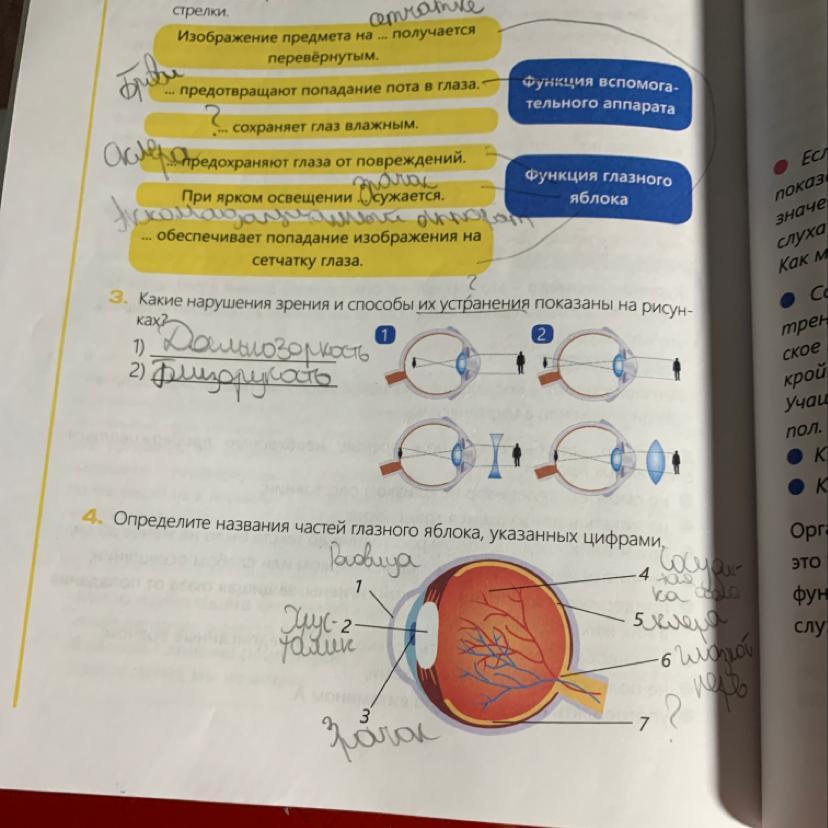 стрелки.
сетчатке
Изображение предмета на ... получается
перевёрнутым.
Брови
... предотвращают попадание пота в глаза.
Функция вспомога-
тельного аппарата
?
... сохраняет глаз влажным.
Склера
... предохраняют глаза от повреждений.
Функция глазного
яблока
зрачок
При ярком освещении ... сужается.
аппарат
... обеспечивает попадание изображения на
сетчатку глаза.
?
3. Какие нарушения зрения и способы их устранения показаны на рисун-
ках?
1) Дальнозоркость
2) Близорукость
1
2
4. Определите названия частей глазного яблока, указанных цифрами.
Роговица
1
Хрус-
талик
2
3
Зрачок
4
5 склера
6
нерв
7 ?
Есл
показ
значе
слуха
Как м
Со
трен
ское
крой
Учащ
пол.
К
К
Орга
это
фун
слу